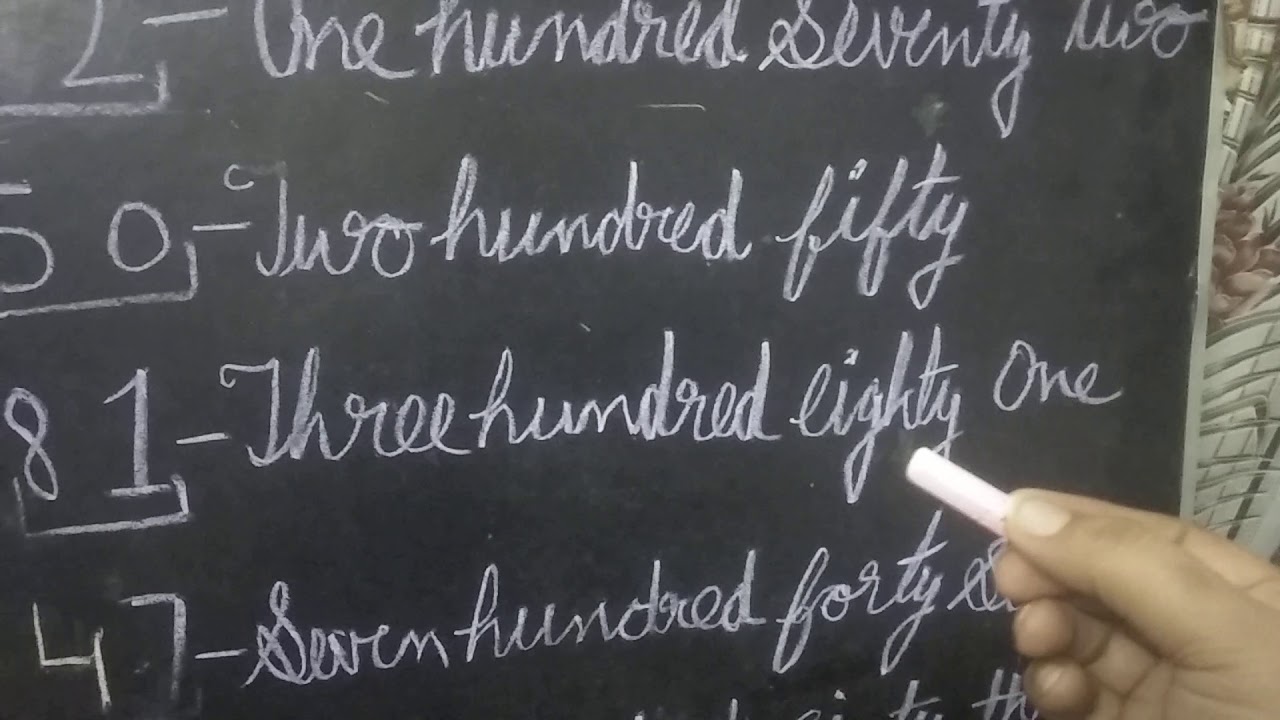 2 - One hundred Seventy two
50 - Two hundred fifty
81 - Three hundred eighty One
47 - Seven hundred forty